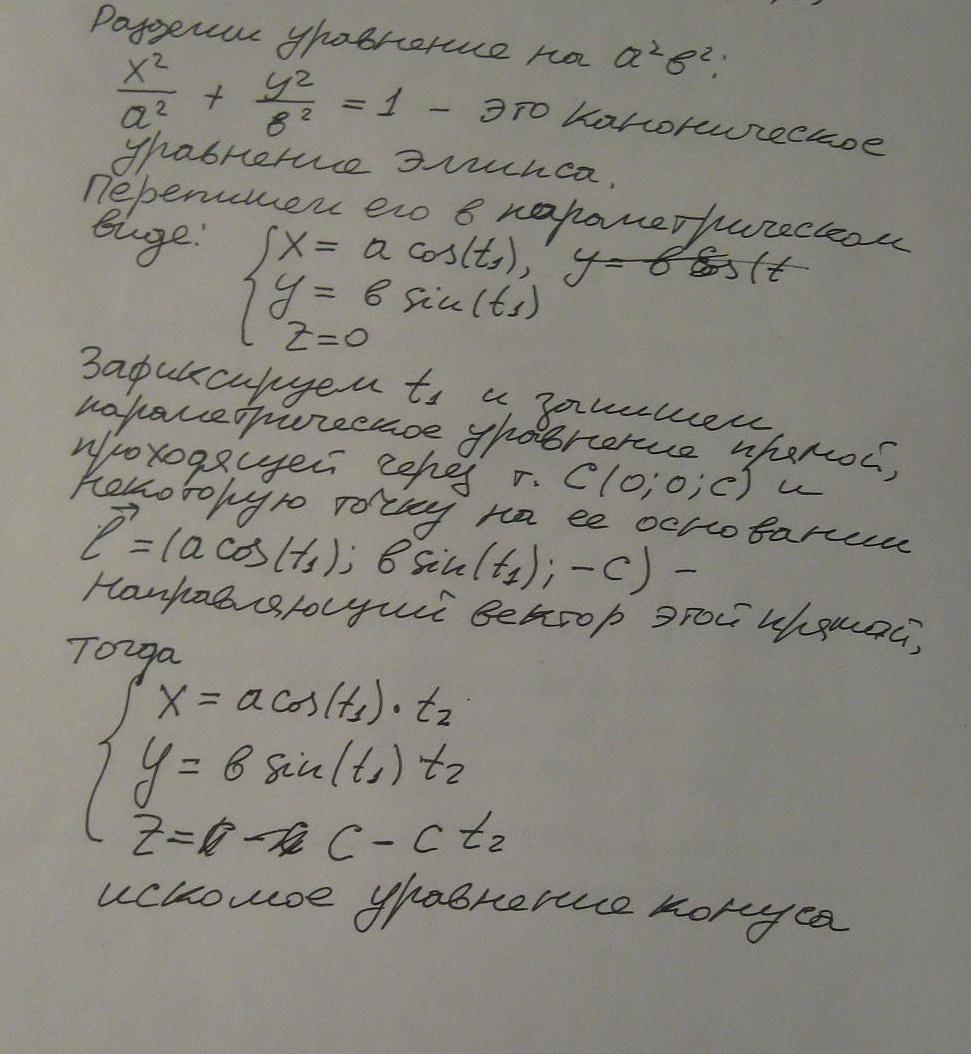 Разделим уравнение на a²b²:
x²/a² + y²/b² = 1 – это каноническое
уравнение эллипса.
Перепишем его в параметрическом
виде: { x = a cos(t₁), y = b cos(t
y = b sin(t₁)
z=0
Зафиксируем t₁ и запишем
параметрическое уравнение прямой,
проходящей через т. C(0;0;c) и
некоторую точку на ее основании
l⃗ = (a cos(t₁); b sin(t₁); -c) –
направляющий вектор этой прямой,
тогда
{ x = a cos(t₁)·t₂
y = b sin(t₁) t₂
z = c - c t₂
искомое уравнение конуса